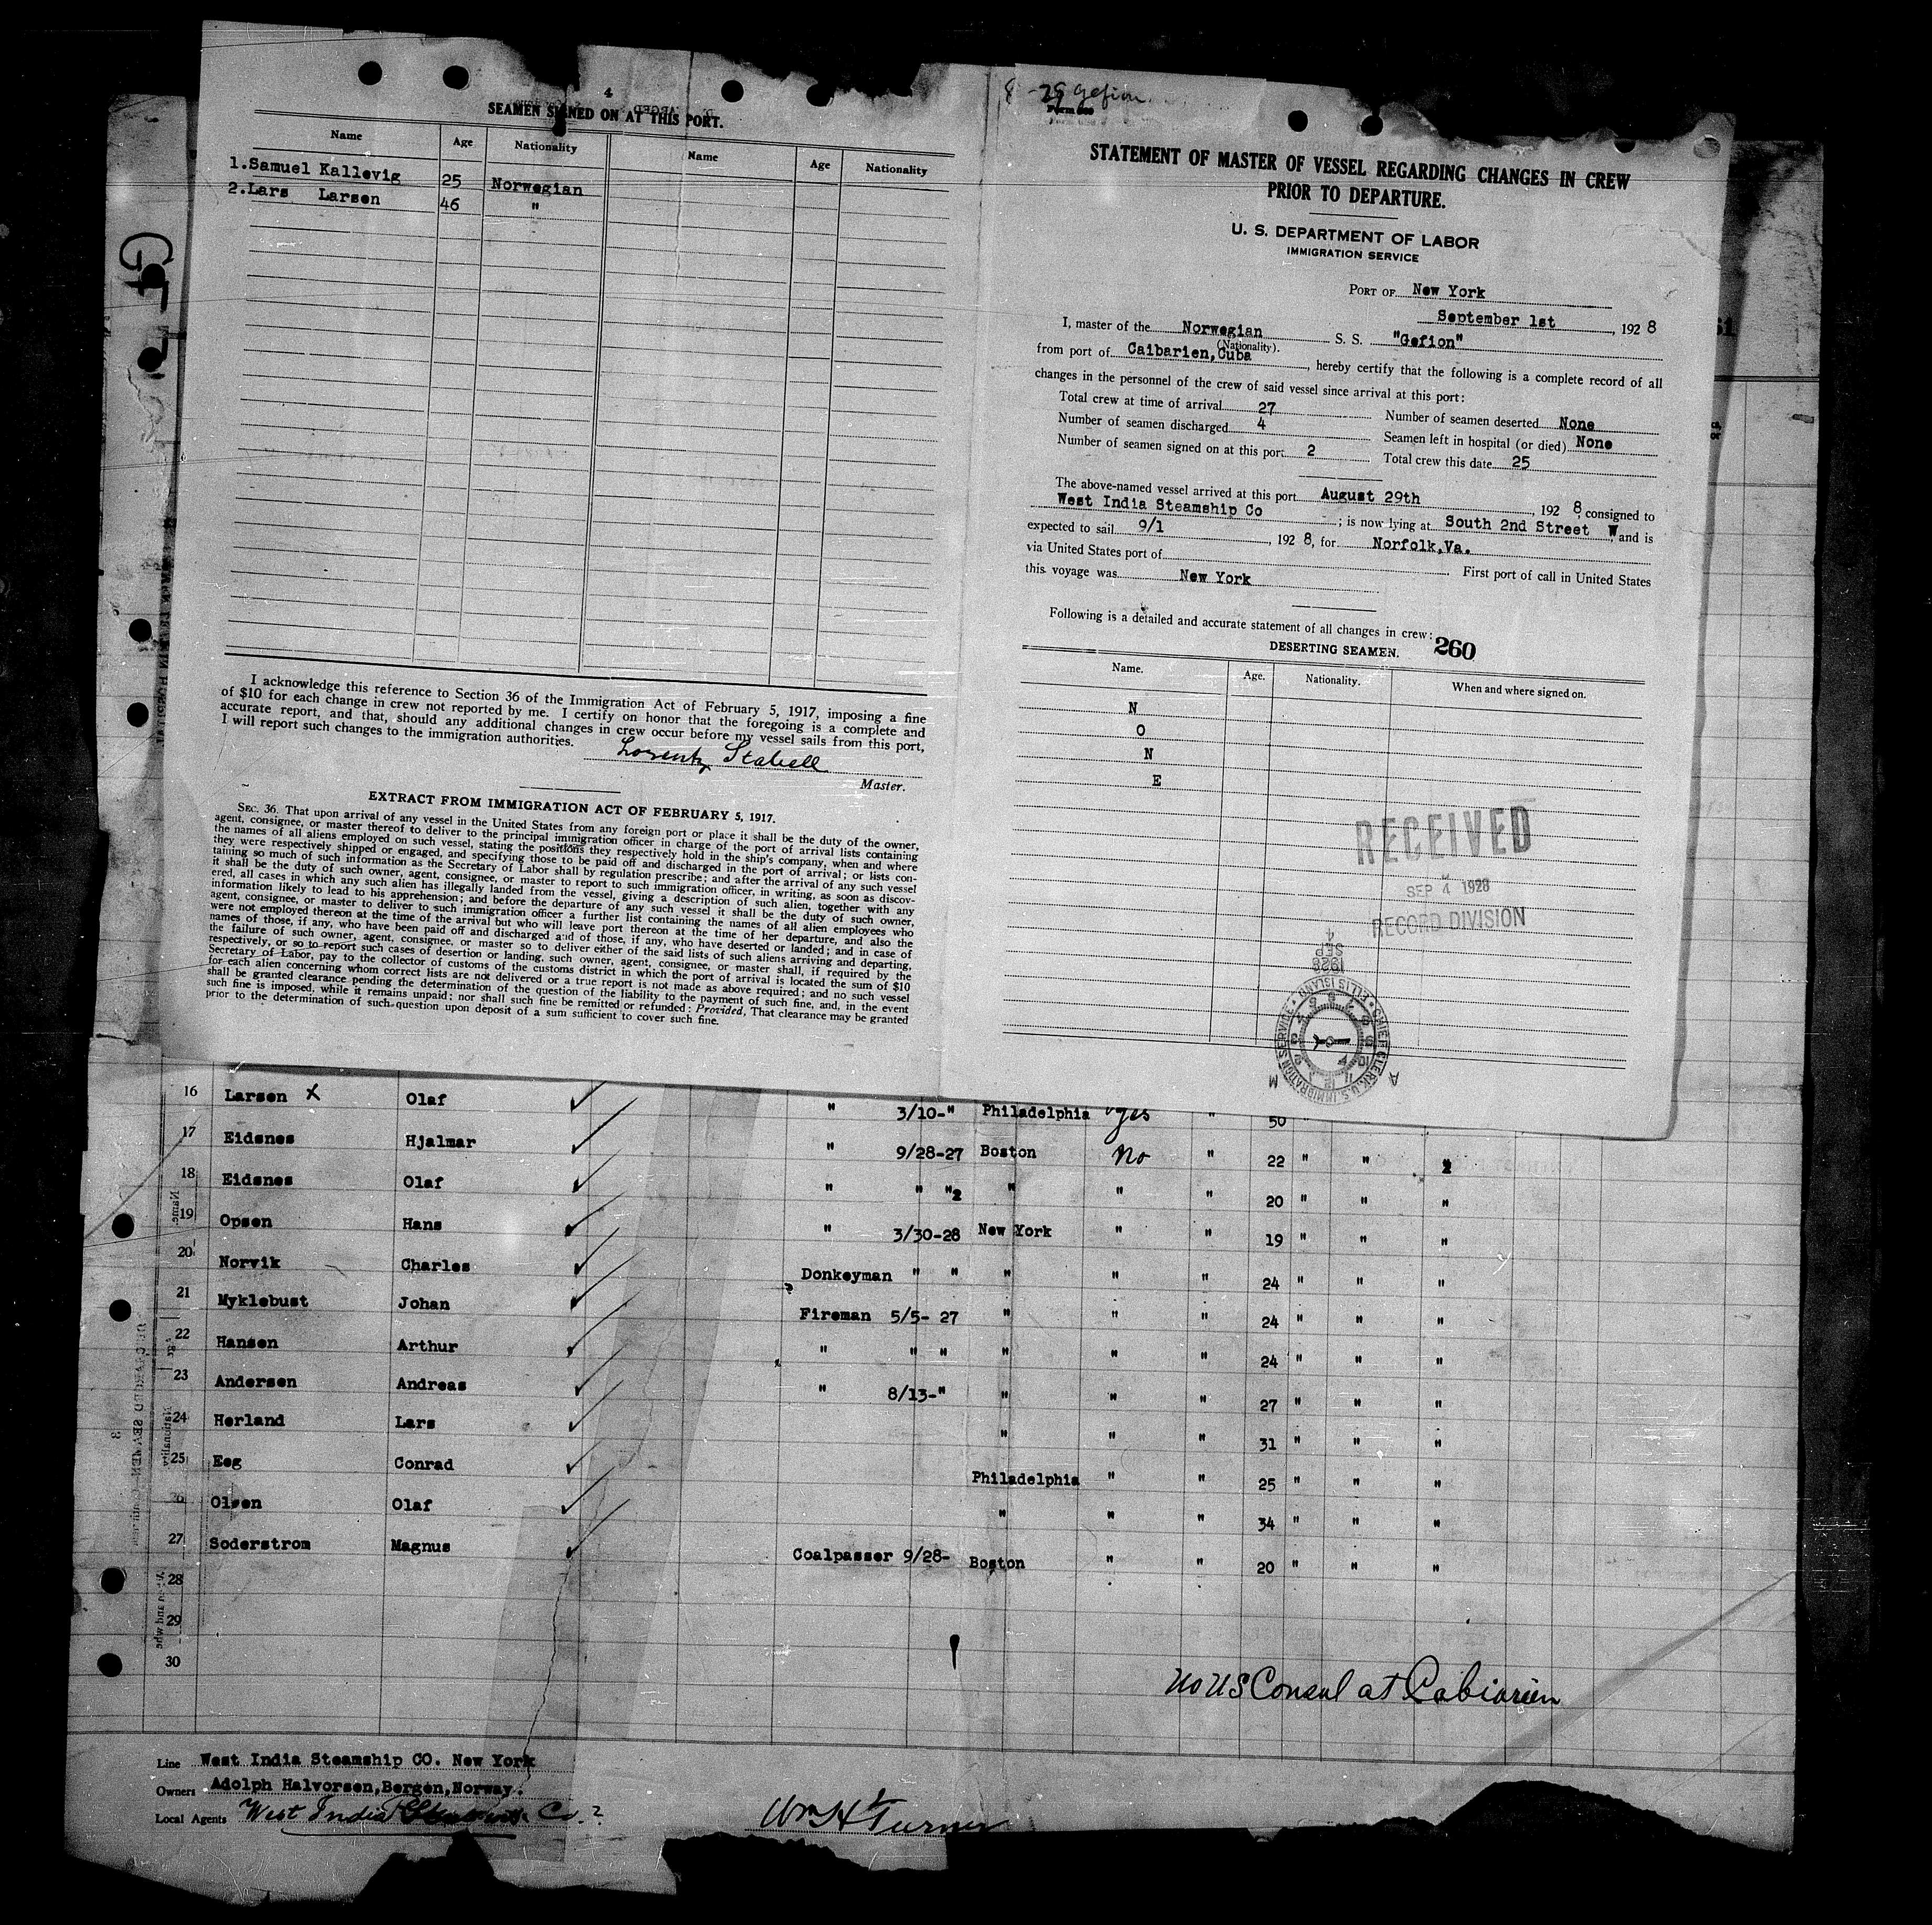 4
SEAMEN SIGNED ON AT THIS PORT.
Name Age Nationality Name Age Nationality
1. Samuel Kallevig 25 Norwegian
2. Lars Larsen 46 "
I acknowledge this reference to Section 36 of the Immigration Act of February 5, 1917, imposing a fine
of $10 for each change in crew not reported by me. I certify on honor that the foregoing is a complete and
accurate report, and that, should any additional changes in crew occur before my vessel sails from this port,
I will report such changes to the immigration authorities.
Lorentz Stabell
Master.
EXTRACT FROM IMMIGRATION ACT OF FEBRUARY 5, 1917.
SEC. 36. That upon arrival of any vessel in the United States from any foreign port or place it shall be the duty of the owner,
agent, consignee, or master thereof to deliver to the principal immigration officer in charge of the port of arrival lists containing
the names of all aliens employed on such vessel, stating the positions they respectively hold in the ship's company, when and where
they were respectively shipped or engaged, and specifying those to be paid off and discharged in the port of arrival; or lists con-
taining so much of such information as the Secretary of Labor shall by regulation prescribe; and after the arrival of any such vessel
it shall be the duty of such owner, agent, consignee, or master to report to such immigration officer, in writing, as soon as discov-
ered, all cases in which any such alien has illegally landed from the vessel, giving a description of such alien, together with any
information likely to lead to his apprehension; and before the departure of any such vessel it shall be the duty of such owner,
agent, consignee, or master to deliver to such immigration officer a further list containing the names of all alien employees who
were not employed thereon at the time of the arrival but who will leave port thereon at the time of her departure, and also the
names of those, if any, who have been paid off and discharged and of those, if any, who have deserted or landed; and in case of
the failure of such owner, agent, consignee, or master so to deliver either of the said lists of such aliens arriving and departing,
respectively, or so to report such cases of desertion or landing, such owner, agent, consignee, or master shall, if required by the
Secretary of Labor, pay to the collector of customs of the customs district in which the port of arrival is located the sum of $10
for each alien concerning whom correct lists are not delivered or a true report is not made as above required; and no such vessel
shall be granted clearance pending the determination of the question of the liability to the payment of such fine, and, in the event
such fine is imposed, while it remains unpaid; nor shall such fine be remitted or refunded: Provided, That clearance may be granted
prior to the determination of such question upon deposit of a sum sufficient to cover such fine.
8-29 Gefion
STATEMENT OF MASTER OF VESSEL REGARDING CHANGES IN CREW
PRIOR TO DEPARTURE.
U. S. DEPARTMENT OF LABOR
IMMIGRATION SERVICE
PORT OF New York
September 1st, 1928
I, master of the Norwegian S. S. "Gefion"
(Nationality).
from port of Caibarien, Cuba, hereby certify that the following is a complete record of all
changes in the personnel of the crew of said vessel since arrival at this port:
Total crew at time of arrival 27 Number of seamen deserted None
Number of seamen discharged 4 Seamen left in hospital (or died) None
Number of seamen signed on at this port 2 Total crew this date 25
The above-named vessel arrived at this port August 29th, 1928, consigned to
West India Steamship Co; is now lying at South 2nd Street W and is
expected to sail 9/1, 1928, for Norfolk, Va.
via United States port of First port of call in United States
this voyage was New York
Following is a detailed and accurate statement of all changes in crew:
DESERTING SEAMEN. 260
Name. Age. Nationality. When and where signed on.
N
O
N
E
RECEIVED
SEP 4 1928
RECORD DIVISION
SEP 4 1928
CHIEF CLERK, U.S. IMMIGRATION SERVICE • ELLIS ISLAND •
GEF
16 Larsen X Olaf " 3/10-" Philadelphia yes " 50
17 Eidsnes Hjalmar " 9/28-27 Boston No " 22 " "
18 Eidsnes Olaf " " "2 " " " 20 " " "
19 Opsen Hans " 3/30-28 New York " " 19 " " "
20 Norvik Charles Donkeyman " " " " " 24 " " "
21 Myklebust Johan Fireman 5/5- 27 " " " 24 " " "
22 Hansen Arthur " " " " " " 24 " " "
23 Andersen Andreas " 8/13-" " " " 27 " " "
24 Herland Lars " " " 31 " " "
25 Eeg Conrad Philadelphia " " 25 " " "
26 Olsen Olaf " " " 34 " " "
27 Soderstrom Magnus Coalpasser 9/28- Boston " " 20 " " "
28
29
30
No US Consul at Cabiarien
Line West India Steamship CO. New York
Owners Adolph Halvorsen, Bergen, Norway.
Local Agents West India Co.
Wm H Turner